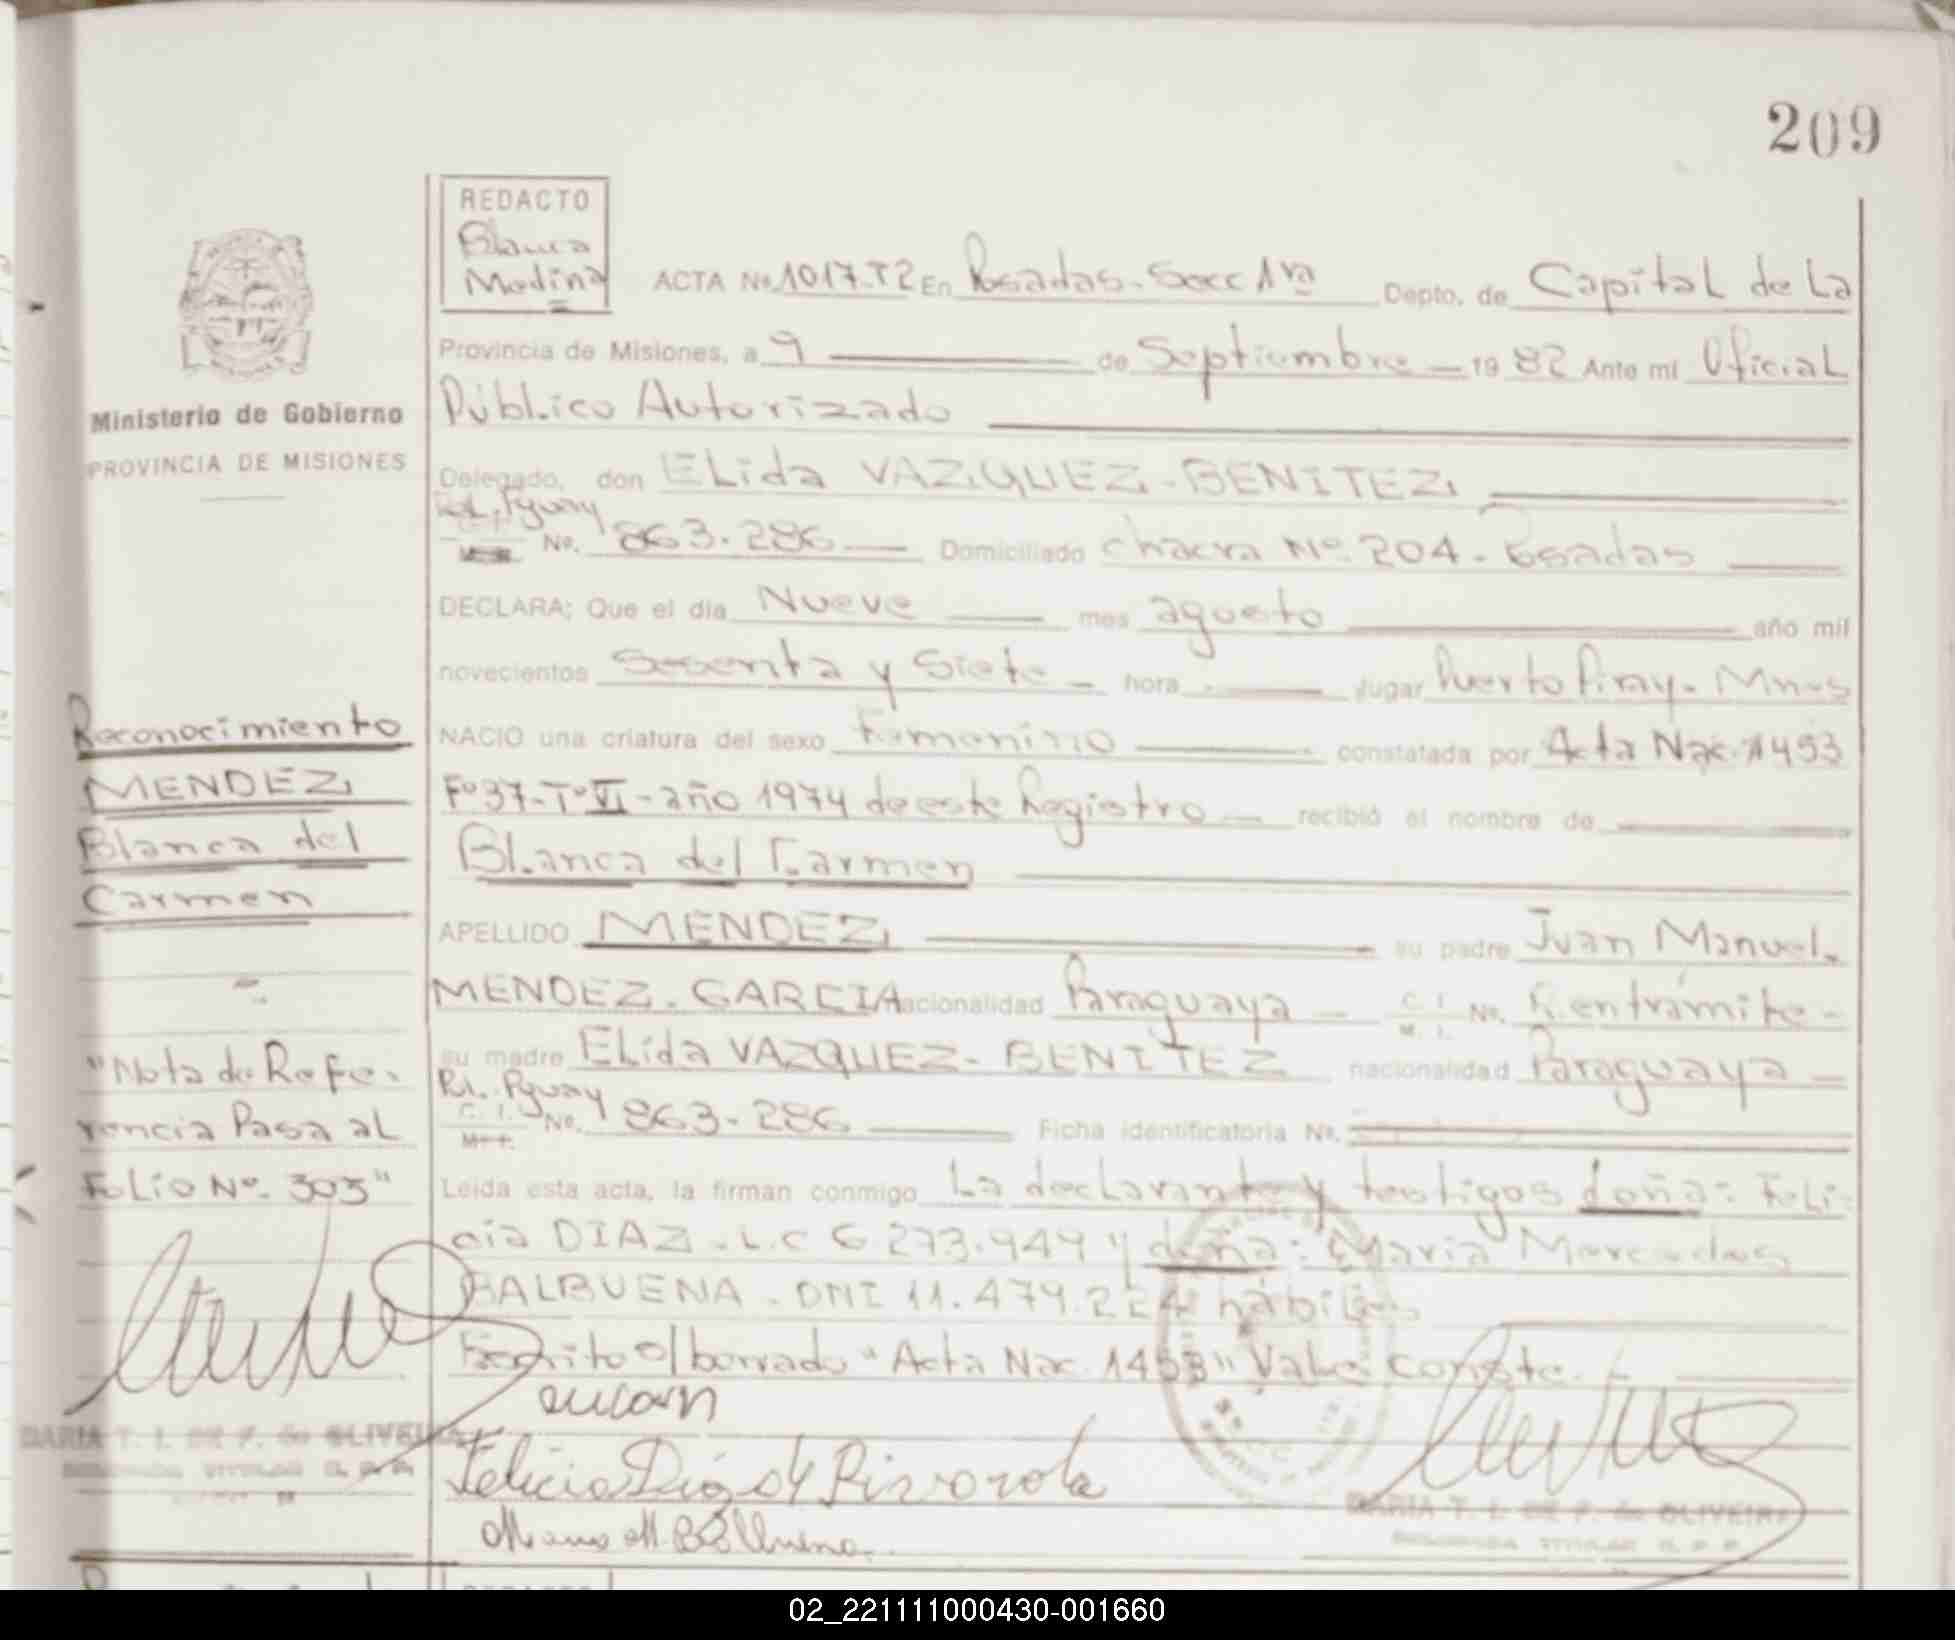 209
REDACTO
Blanca
Medina
ACTA No 1017-T2 En Posadas-Secc 1ra Depto. de Capital de La
Provincia de Misiones, a 9 de Septiembre 19 82 Ante mi Oficial
Público Autorizado
Ministerio de Gobierno
PROVINCIA DE MISIONES
Delegado, don ELida VAZQUEZ-BENITEZ
Pol. Pguay
No. 863.286 Domiciliado chacra Nº 204 - Posadas
DECLARA; Que el día Nueve mes agosto año mil
novecientos Sesenta y Siete hora lugar Puerto Piray- Mnes
NACIO una criatura del sexo Femenino constatada por Acta Nac. 1453
Fº37-TºVI-año 1974 de este Registro recibió el nombre de
Blanca del Carmen
APELLIDO MENDEZ su padre Juan Manuel
MENDEZ-GARCIA nacionalidad Paraguaya C. I. M. I. No. R. en trámite-
su madre ELida VAZQUEZ-BENITEZ nacionalidad Paraguaya
Pol. Pguay
C. I. M. I. No. 863-286 Ficha identificatoria No.
Leída esta acta, la firman conmigo La declarante y testigos doña: Feli-
cia DIAZ - L.C 6 273.949 y doña: María Mercedes
BALBUENA - DNI 11.479.224 hábiles
Escrito s/borrado "Acta Nac. 1453" Vale Conste.-
Reconocimiento
MENDEZ
Blanca del
Carmen
"Nota de Refe-
rencia Pasa al
FoLio Nº. 303"
DARIA T. I. DE F. de OLIVEIRA
Felicia Díaz de
DARIA T. I. DE F. de OLIVEIRA
REDACTO
02_221111000430-001660